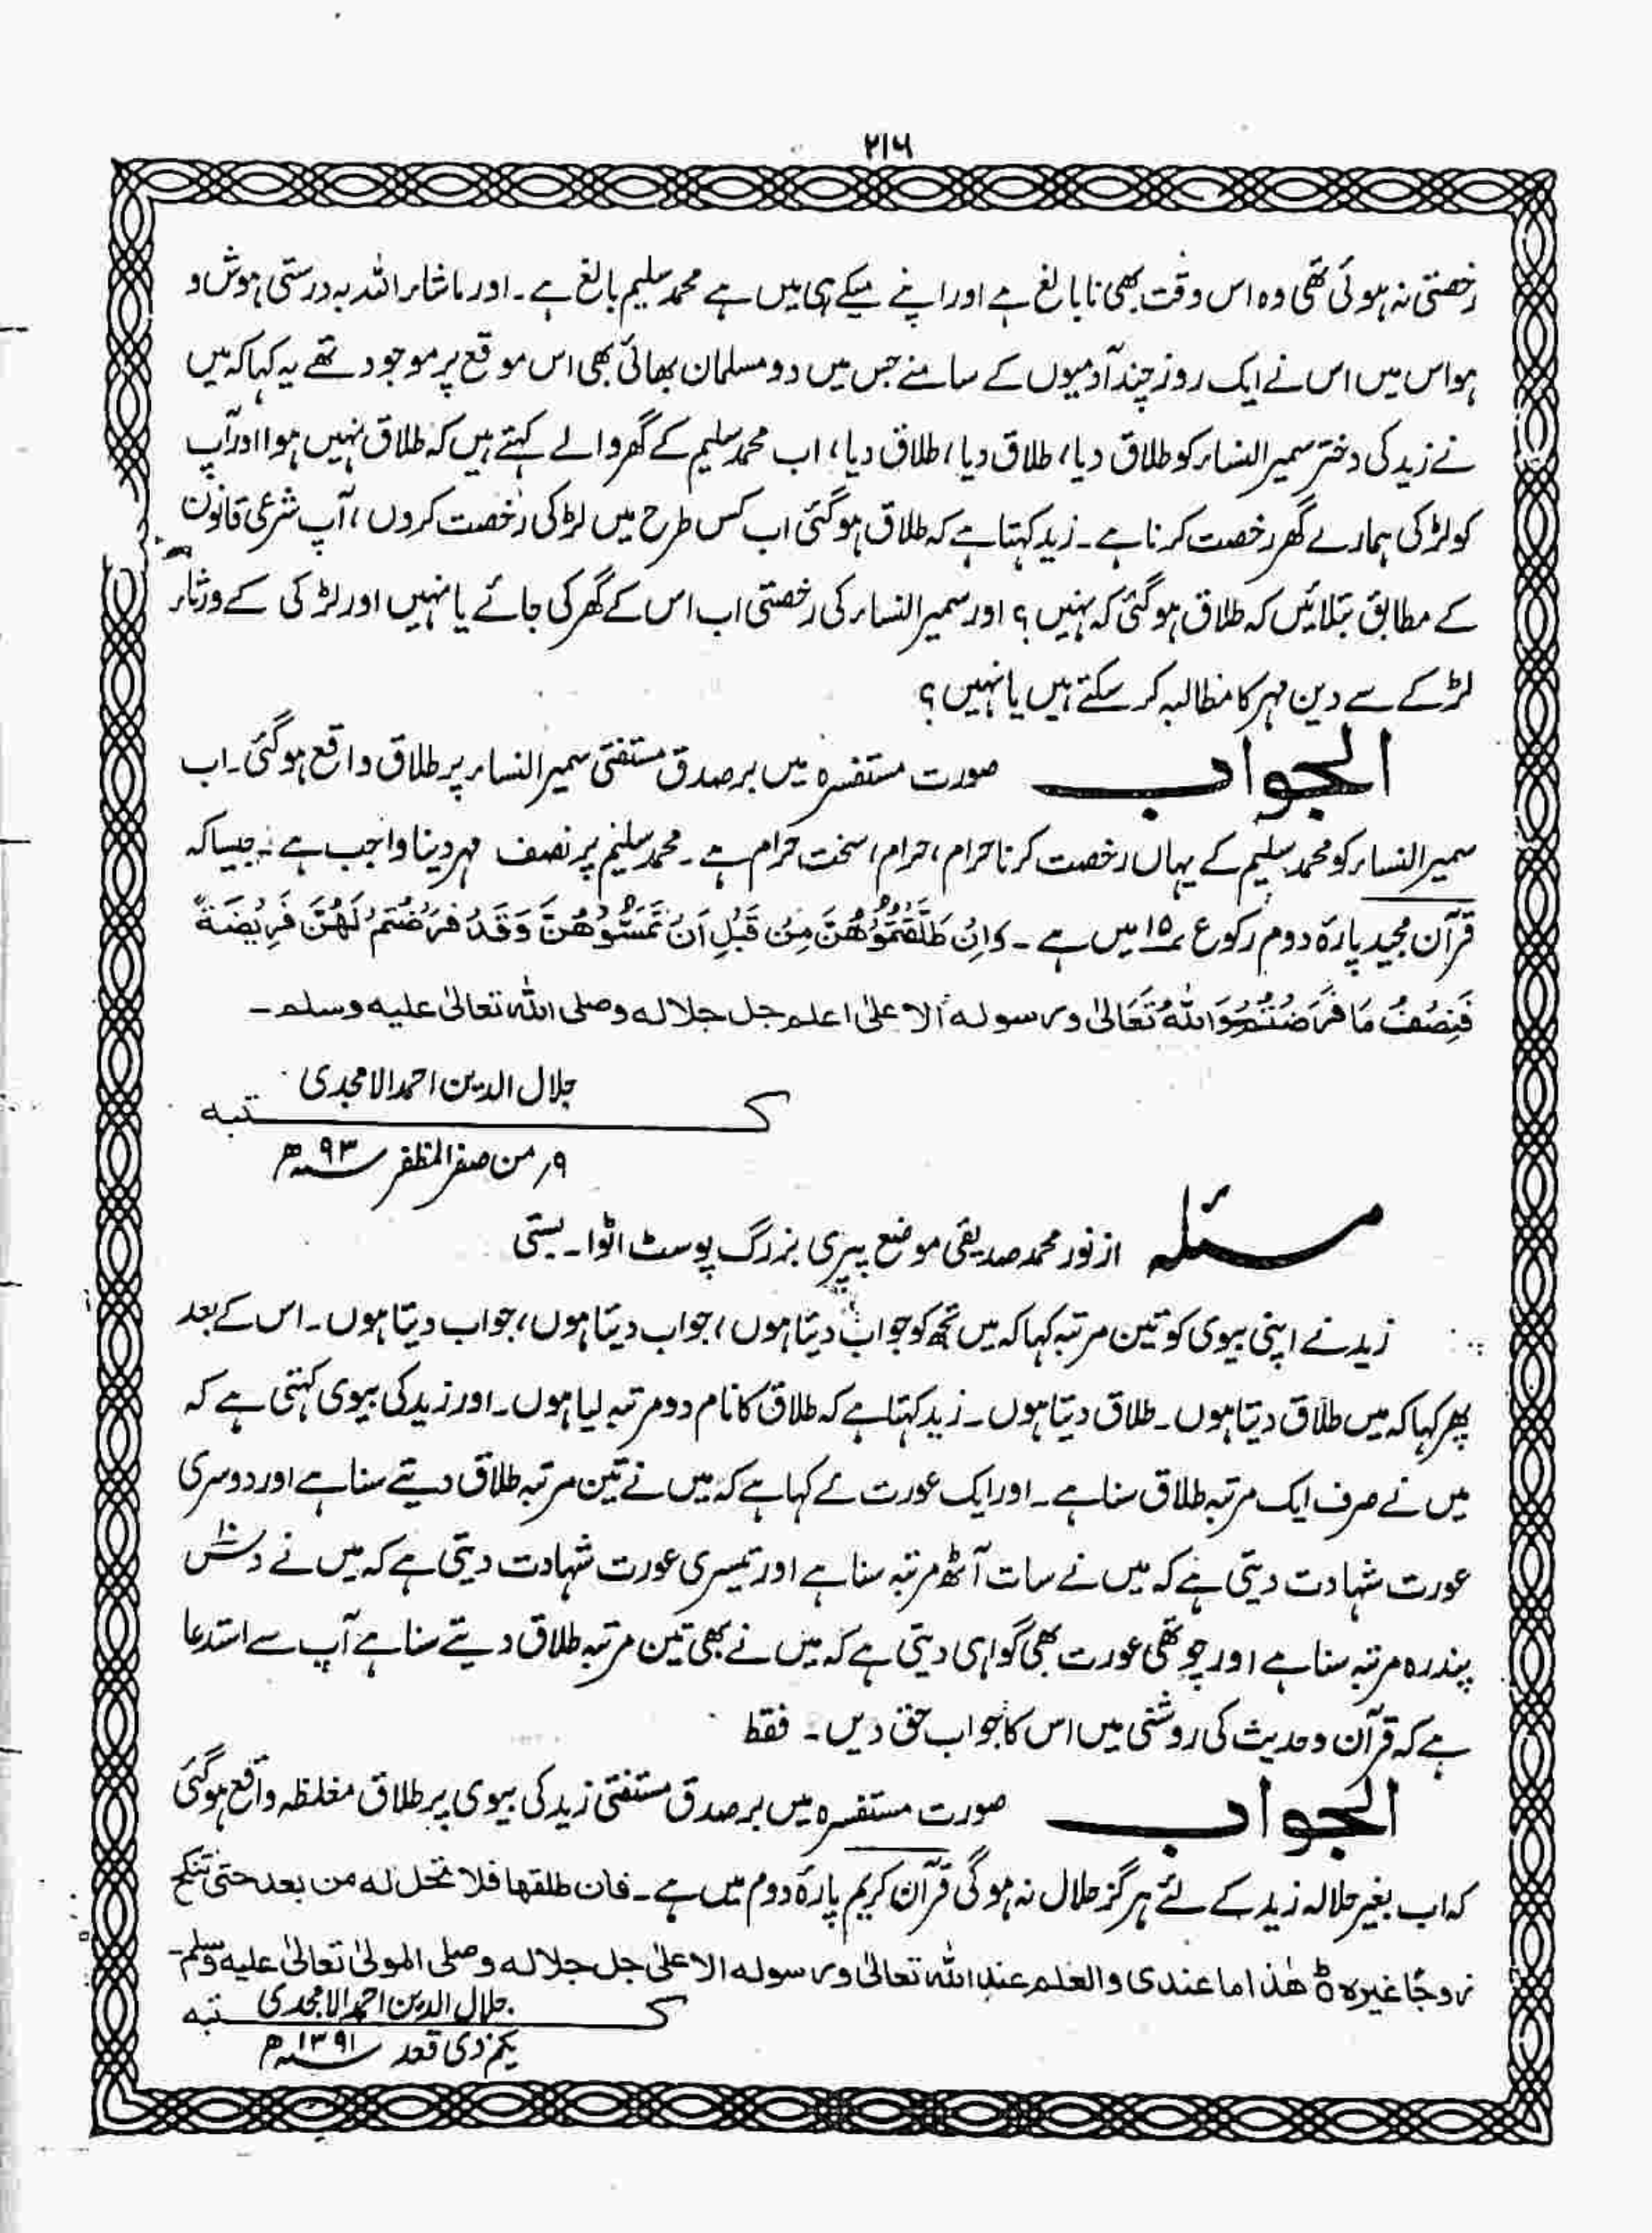 ۲۱۶
رخصتی نہ ہوئی تھی وہ اس وقت بھی نابالغ ہے اور اپنے میکے ہی میں ہے محمد سلیم بالغ ہے۔ اور ماشاء اللہ بہ درستی ہوش و
ہواس میں اس نے ایک روز چند آدمیوں کے سامنے جس میں دو مسلمان بھائی بھی اس موقع پر موجود تھے یہ کہا کہ میں
نے زید کی دختر سمیر النساء کو طلاق دیا، طلاق دیا، طلاق دیا، اب محمد سلیم کے گھر والے کہتے ہیں کہ طلاق نہیں ہوا اور آپ
کو لڑکی ہمارے گھر رخصت کرنا ہے۔ زید کہتا ہے کہ طلاق ہوگئی اب کس طرح میں لڑکی رخصت کروں، آپ شرعی قانون
کے مطابق بتلائیں کہ طلاق ہوگئی کہ نہیں؟ اور سمیر النساء کی رخصتی اب اس کے گھر کی جائے یا نہیں اور لڑکی کے ورثاء
لڑکے سے دین مہر کا مطالبہ کر سکتے ہیں یا نہیں؟
الجواب صورت مستفسرہ میں بر صدق مستفتی سمیر النساء پر طلاق واقع ہوگئی۔ اب
سمیر النساء کو محمد سلیم کے یہاں رخصت کرنا حرام، حرام، سخت حرام ہے۔ محمد سلیم پر نصف مہر دینا واجب ہے۔ جیسا کہ
قرآن مجید پارہ دوم رکوع ۱۵ میں ہے۔ وَاِنْ طَلَّقْتُمُوْهُنَّ مِنْ قَبْلِ اَنْ تَمَسُّوْهُنَّ وَقَدْ فَرَضْتُمْ لَهُنَّ فَرِيْضَةً
فَنِصْفُ مَا فَرَضْتُمْ وَاللّٰهُ تَعَالٰى ورسوله الاعلىٰ اعلم جل جلاله وصلى الله تعالىٰ عليه وسلم۔
جلال الدین احمد الامجدی
کتبه
۹؍ من صفر المظفر ۹۳ھ
مسئلہ از نور محمد صدیقی موضع پیری بزرگ پوسٹ اٹوا۔ بستی
زید نے اپنی بیوی کو تین مرتبہ کہا کہ میں تجھ کو جواب دیتا ہوں، جواب دیتا ہوں، جواب دیتا ہوں۔ اس کے بعد
پھر کہا کہ میں طلاق دیتا ہوں۔ طلاق دیتا ہوں۔ زید کہتا ہے کہ طلاق کا نام دو مرتبہ لیا ہوں۔ اور زید کی بیوی کہتی ہے کہ
میں نے صرف ایک مرتبہ طلاق سنا ہے۔ اور ایک عورت نے کہا ہے کہ میں نے تین مرتبہ طلاق دیتے سنا ہے اور دوسری
عورت شہادت دیتی ہے کہ میں نے سات آٹھ مرتبہ سنا ہے اور تیسری عورت شہادت دیتی ہے کہ میں نے دس ۱۰
پندرہ مرتبہ سنا ہے اور چوتھی عورت بھی گواہی دیتی ہے کہ میں نے بھی تین مرتبہ طلاق دیتے سنا ہے آپ سے استدعا
ہے کہ قرآن و حدیث کی روشنی میں اس کا جواب حق دیں۔ فقط
الجواب صورت مستفسرہ میں بر صدق مستفتی زید کی بیوی پر طلاق مغلظہ واقع ہوگئی
کہ اب بغیر حلالہ زید کے لئے ہرگز حلال نہ ہوگی قرآن کریم پارہ دوم میں ہے۔ فان طلقها فلا تحل له من بعد حتى تنكح
زوجًا غيره ۵ هٰذا ما عندى والعلم عند الله تعالىٰ ورسوله الاعلىٰ جل جلاله وصلى المولىٰ تعالىٰ عليه وسلم۔
جلال الدین احمد الامجدی
کتبه
یکم ذی قعد ۱۳۹۱ھ